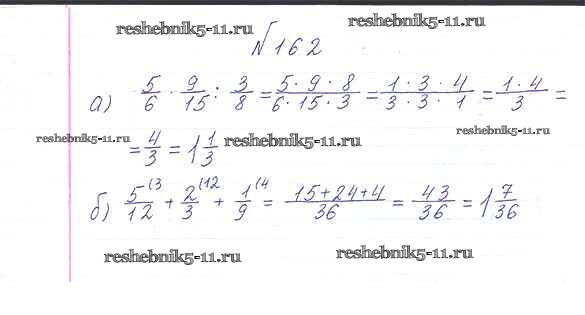 reshebnik5-11.ru reshebnik5-11.ru
№162
а) 5/6 · 9/15 : 3/8 = 5·9·8/6·15·3 = 1·3·4/3·3·1 = 1·4/3 =
reshebnik5-11.ru reshebnik5-11.ru
= 4/3 = 1 1/3 reshebnik5-11.ru
б) 5/12 (3 + 2/3 (12 + 1/9 (4 = 15+24+4/36 = 43/36 = 1 7/36
reshebnik5-11.ru reshebnik5-11.ru